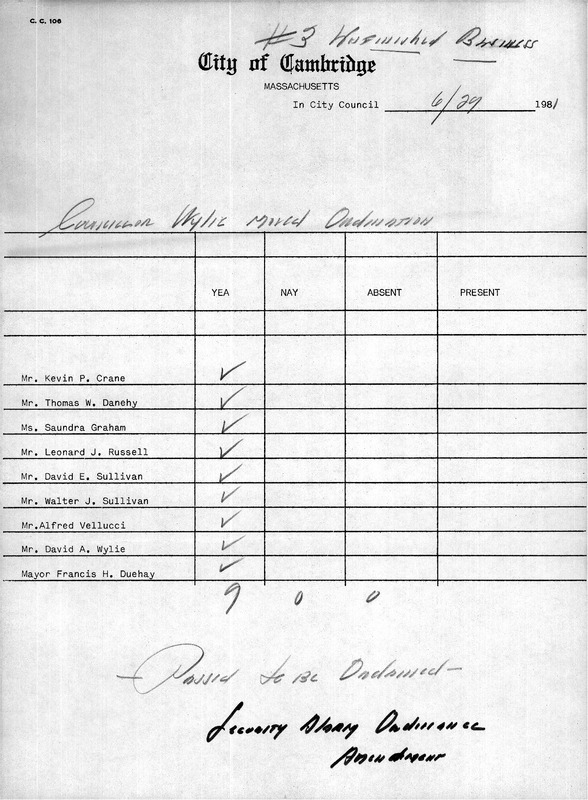 C. C. 106
#3 Unfinished Business
City of Cambridge
MASSACHUSETTS
In City Council 6/29 1981
Councillor Wylie moved Ordination
YEA NAY ABSENT PRESENT
Mr. Kevin P. Crane ✓
Mr. Thomas W. Danehy ✓
Ms. Saundra Graham ✓
Mr. Leonard J. Russell ✓
Mr. David E. Sullivan ✓
Mr. Walter J. Sullivan ✓
Mr.Alfred Vellucci ✓
Mr. David A. Wylie ✓
Mayor Francis H. Duehay ✓
9 0 0
— Passed to be Ordained —
Security Alarm Ordinance
Amendment